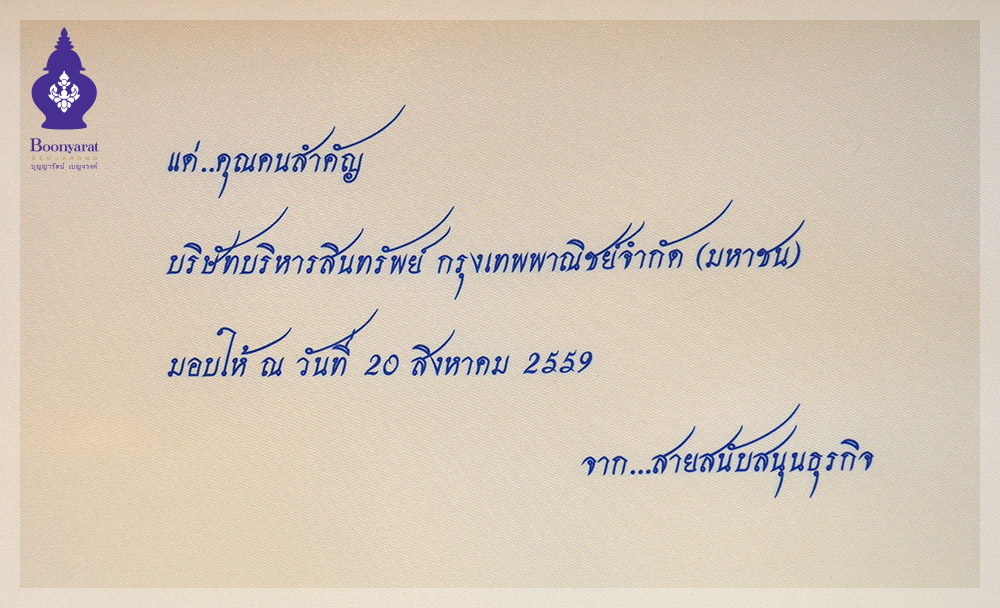 Boonyarat
BENJARONG
บุญญารัตน์ เบญจรงค์
แด่..คุณคนสำคัญ
บริษัทบริหารสินทรัพย์ กรุงเทพพาณิชย์จำกัด (มหาชน)
มอบให้ ณ วันที่ 20 สิงหาคม 2559
จาก...สายสนับสนุนธุรกิจ